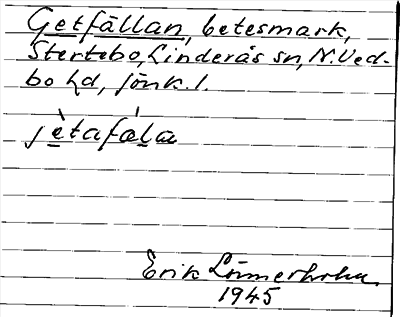 Getfällan, betesmark,
Stertebo, Linderås sn, N. Ved-
bo hd, Jönk. l.
jètafála
Erik Lönnerholm.
1945